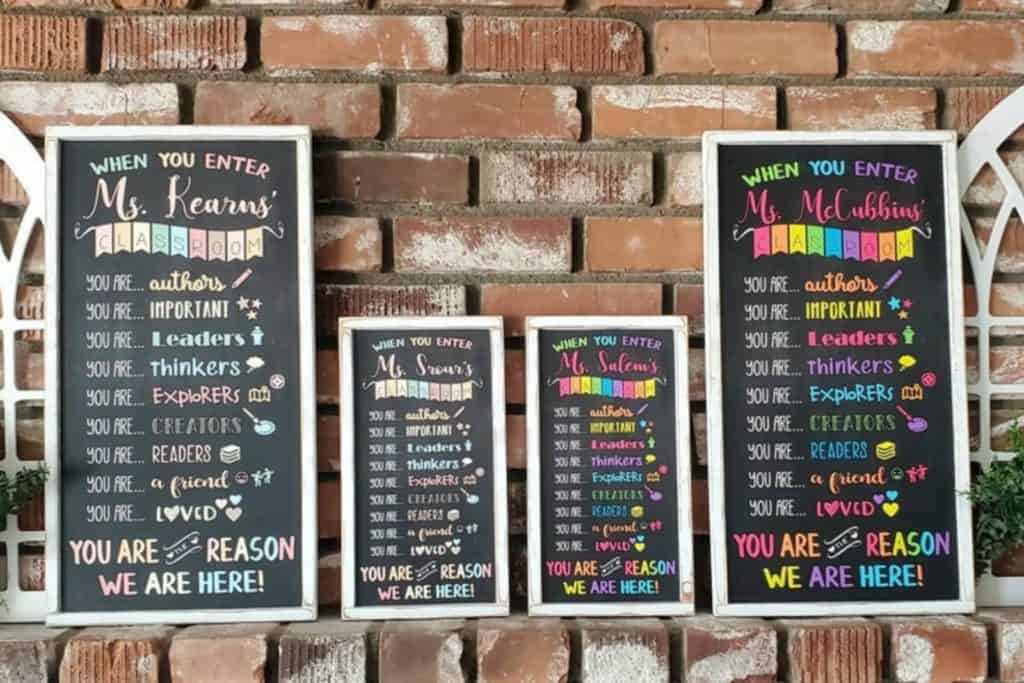 WHEN YOU ENTER
Ms. Kearns'
CLASSROOM
YOU ARE... authors
YOU ARE... IMPORTANT
YOU ARE... Leaders
YOU ARE... thinkers
YOU ARE... ExploRERs
YOU ARE... CREATORS
YOU ARE... READERS
YOU ARE... a friend
YOU ARE... LOVED
YOU ARE THE REASON
WE ARE HERE!
WHEN YOU ENTER
Ms. Srour's
CLASSROOM
YOU ARE... authors
YOU ARE... IMPORTANT
YOU ARE... Leaders
YOU ARE... thinkers
YOU ARE... ExploRERs
YOU ARE... CREATORS
YOU ARE... READERS
YOU ARE... a friend
YOU ARE... LOVED
YOU ARE THE REASON
WE ARE HERE!
WHEN YOU ENTER
Ms. Salem's
CLASSROOM
YOU ARE... authors
YOU ARE... IMPORTANT
YOU ARE... Leaders
YOU ARE... thinkers
YOU ARE... ExploRERs
YOU ARE... CREATORS
YOU ARE... READERS
YOU ARE... a friend
YOU ARE... LOVED
YOU ARE THE REASON
WE ARE HERE!
WHEN YOU ENTER
Ms. McCubbins'
CLASSROOM
YOU ARE... authors
YOU ARE... IMPORTANT
YOU ARE... Leaders
YOU ARE... thinkers
YOU ARE... ExploRERs
YOU ARE... CREATORS
YOU ARE... READERS
YOU ARE... a friend
YOU ARE... LOVED
YOU ARE THE REASON
WE ARE HERE!